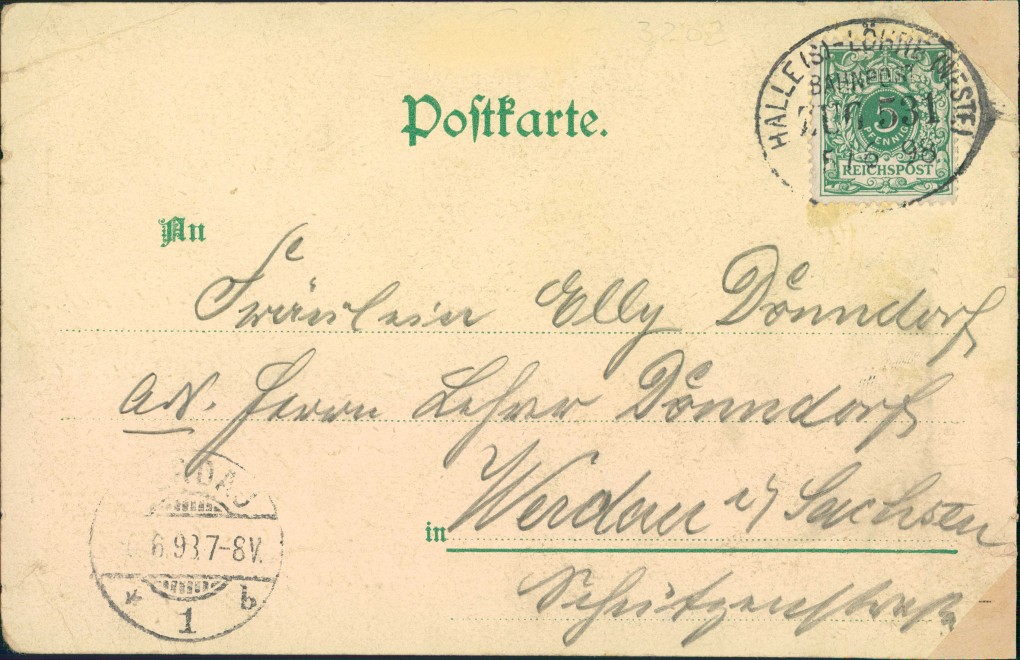 3202
HALLE (S)-LÖHNE (WESTF)
BAHNPOST
ZUG 531
98
5
PFENNIG
REICHSPOST
Postkarte.
An
Fräulein Elly Dönndorf
Adr. Herrn Lehrer Dönndorf
in Werdau i/ Sachsen
Schützenstraße
RDAU
6.98 7-8V.
* 1 b